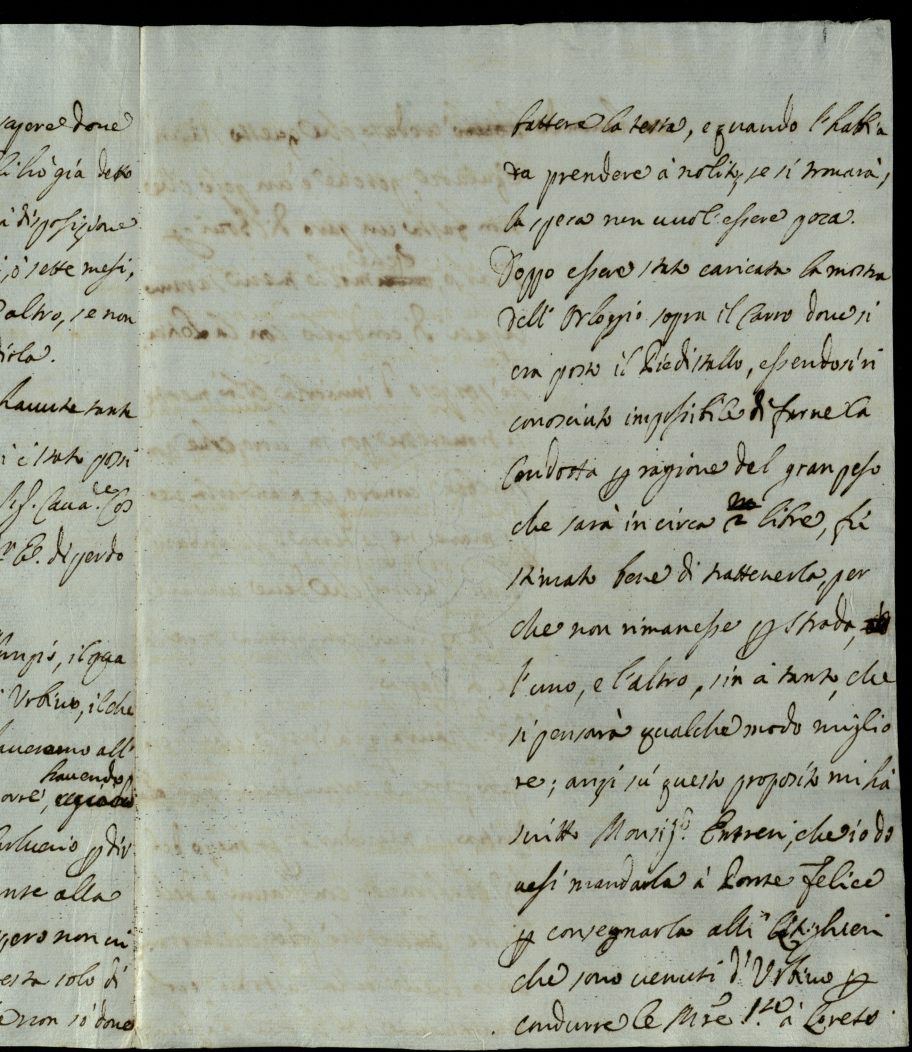 sapere doue
già detto
disposizione
ò sette mesi,
altro, se non
hauute tante
è stato possi
Caua.re Cos
di perdo
il qua
Urbino, il che
haueremo all'
hauendo
nte alla
pero non ui
resta solo di
e non sò doue
battere la testa, e quando l'habia
da prendere à nolito, se si trouarà,
la spesa non uuol' essere poca.
Doppo essere stata caricata la mostra
dell' Orloggio sopra il Carro doue si
era posto il Piedistallo, essendosi ri
conosciuto impossibile di farne la
Condotta ꝑ ragione del gran peso
che sarà in circa 2 m libre, fù
stimato bene di trattenerla, per
che non rimanesse ꝑ strada,
l'uno, e l'altro, sin à tanto, che
si pensarà qualche modo miglio
re; anzi sù questo proposito mi hà
scritto Monsig.r che io do
uessi mandarla à Ponte Felice
ꝑ consegnarla alli
che sono uenuti d'Urbino ꝑ
condurre le à Loreto